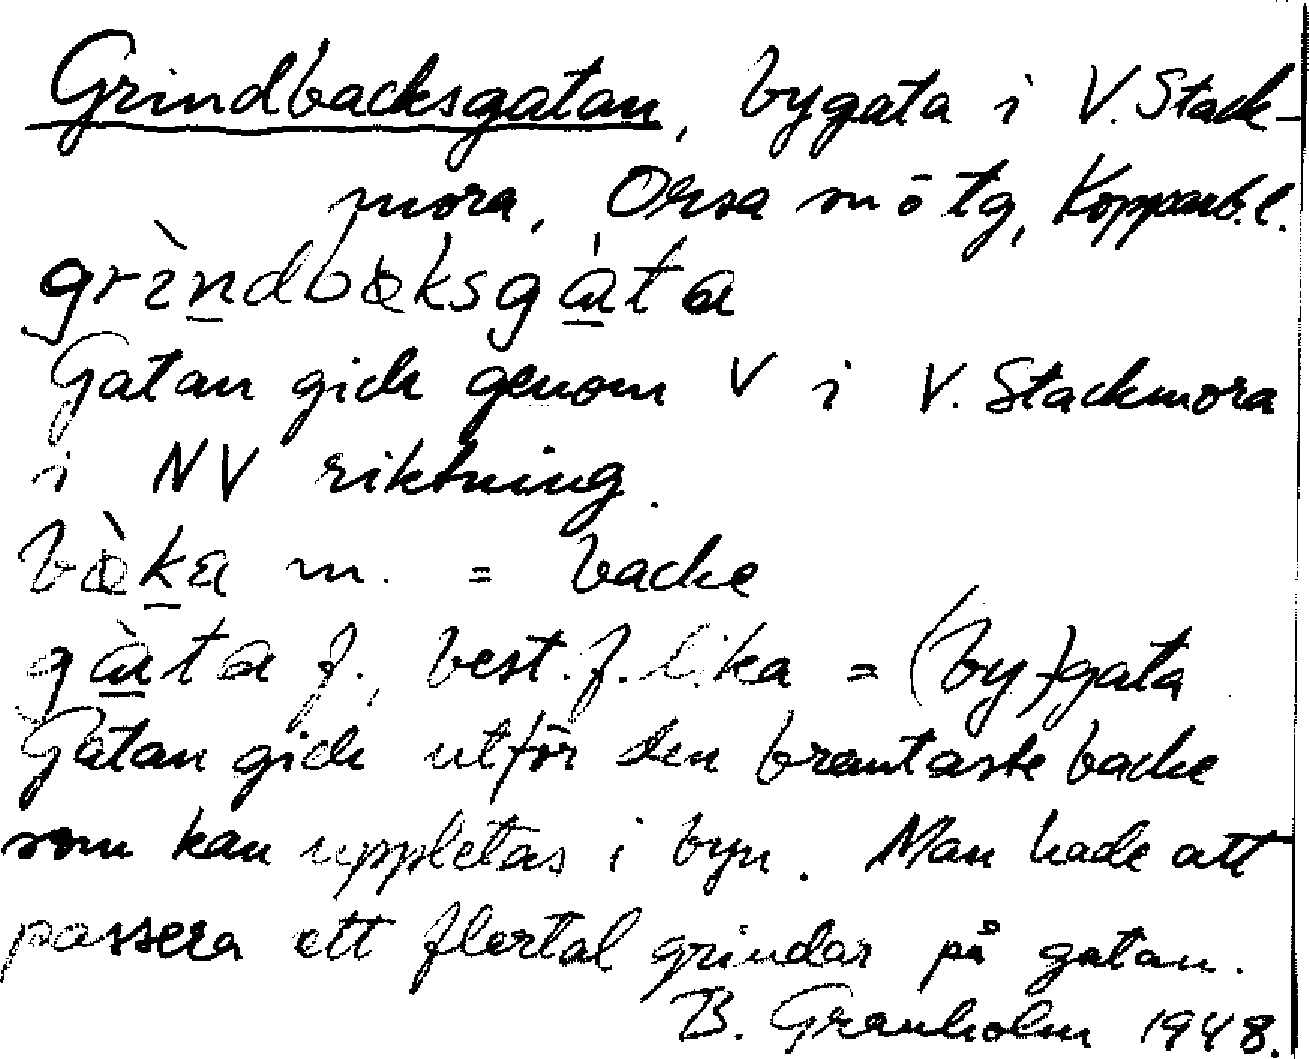 Grindbacksgatan, bygata i V. Stack-
mora, Orsa sn ö tg, Kopparb.l.
grìndbaksgàta
Gatan gick genom V i V. Stackmora
i NV riktning.
bàka m. = backe
gàta f., best. f. lika = (by)gata
Gatan gick utför den brantaste backe
som kan uppletas i byn. Man hade att
passera ett flertal grindar på gatan.
B. Granholm 1948.